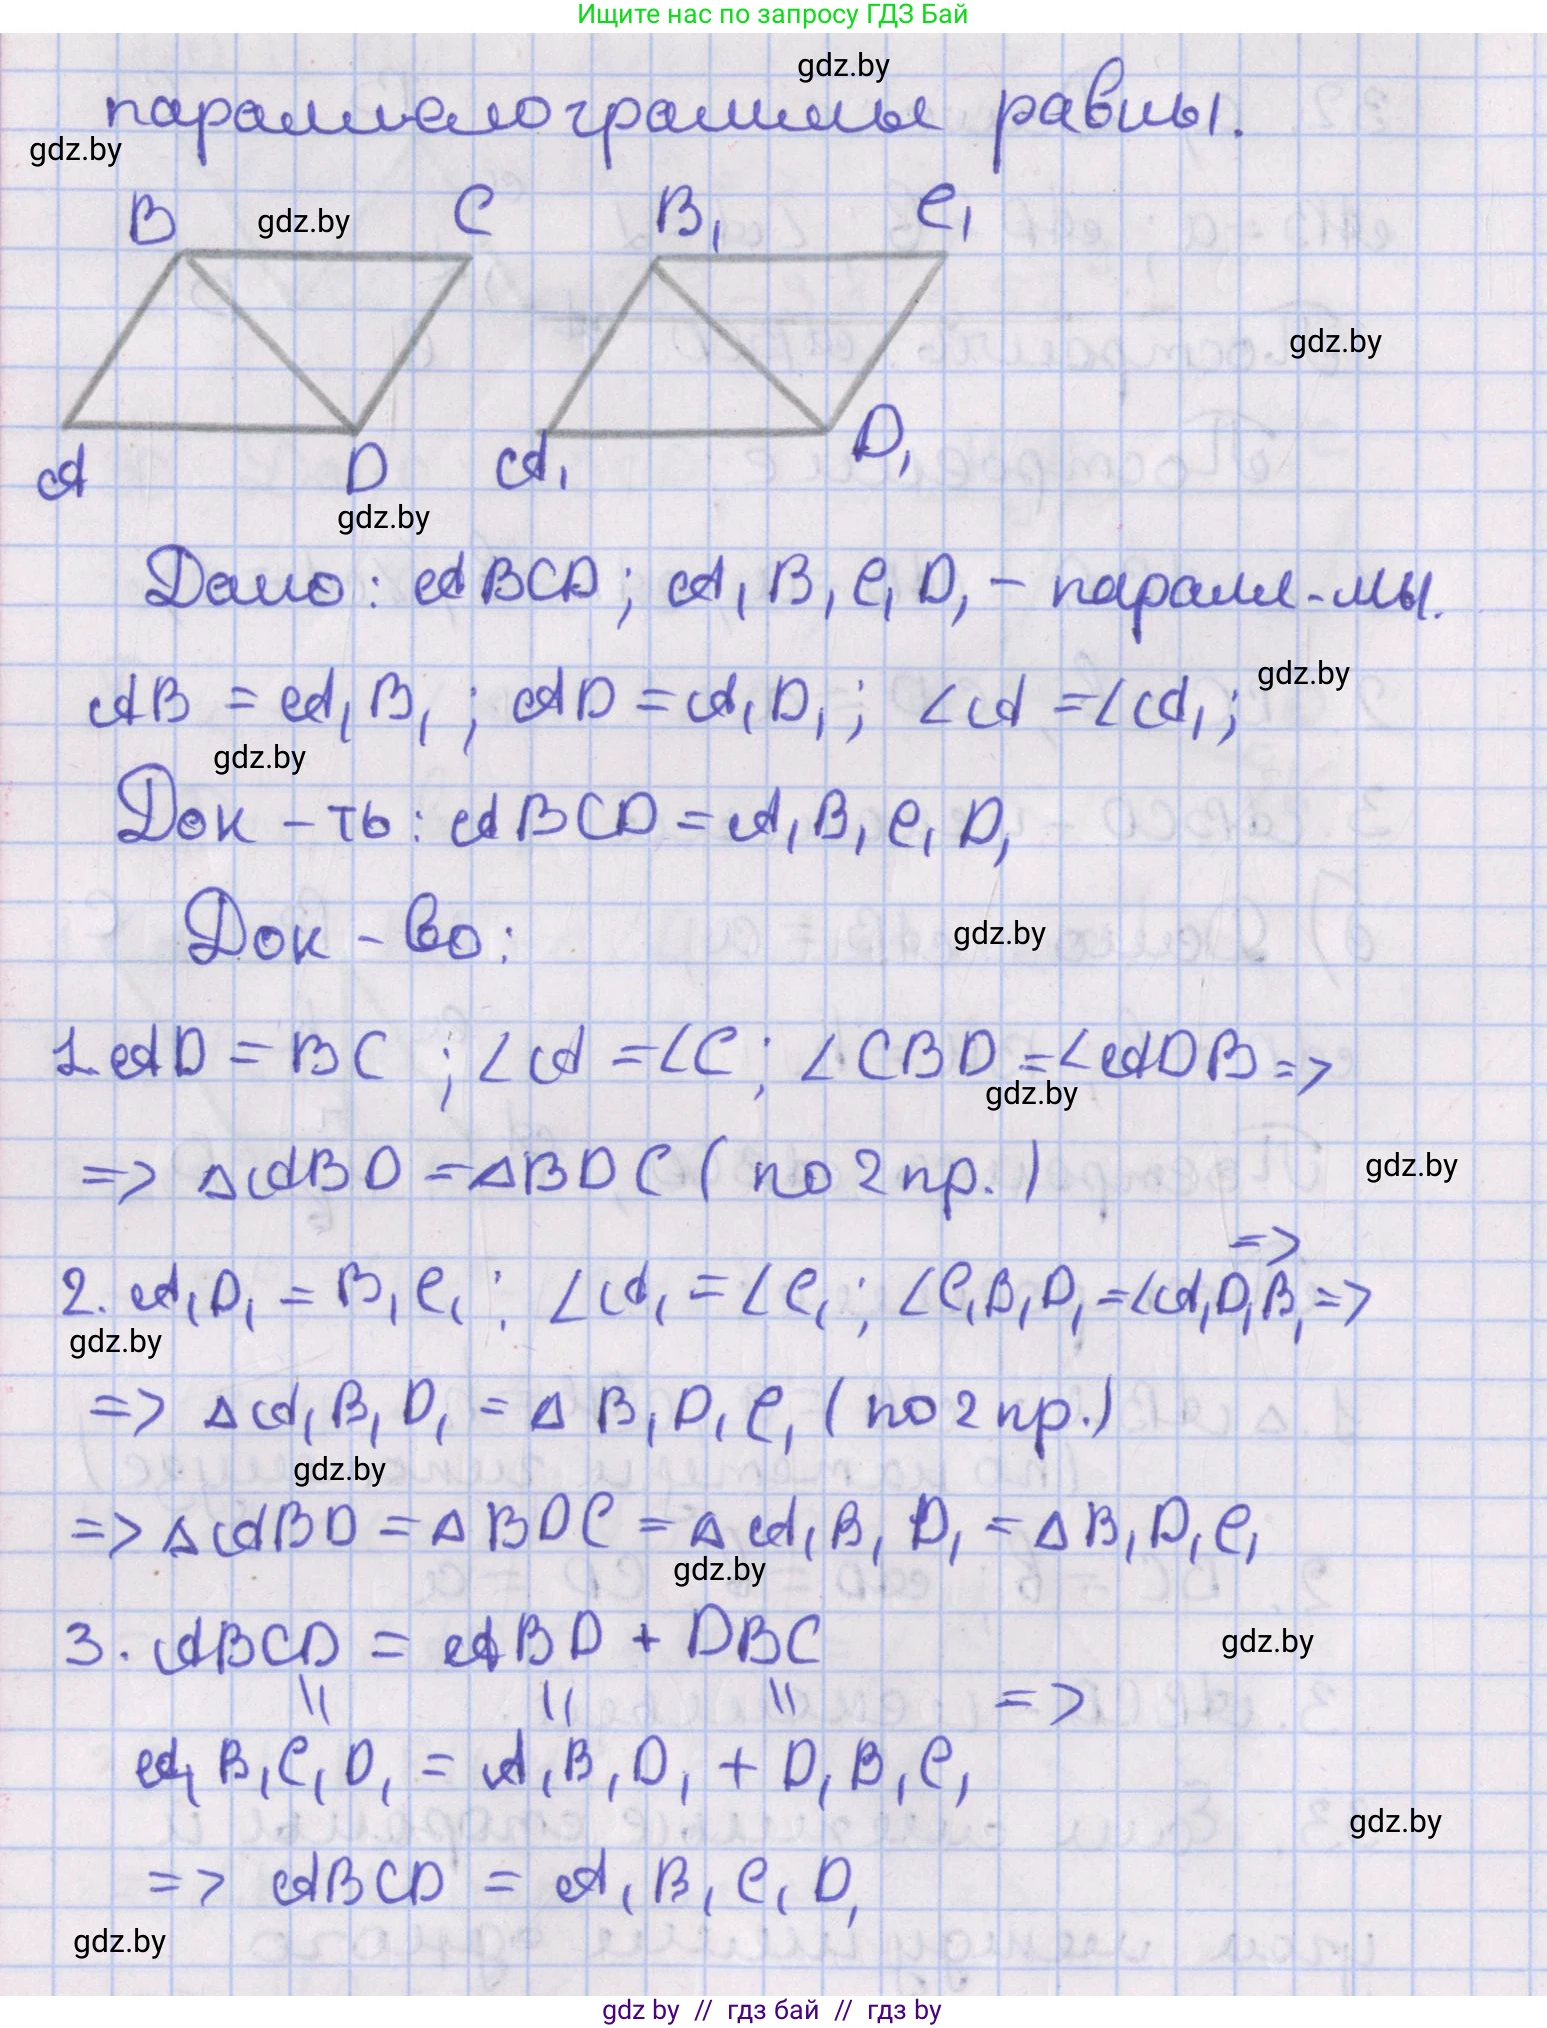 Ищите нас по запросу ГДЗ Бай
gdz.by
параллелограммы равны.
gdz.by
B gdz.by C B₁ C₁
gdz.by
A D A₁ D₁
gdz.by
Дано: ABCD; A₁B₁C₁D₁ – паралл-мы.
gdz.by
AB = A₁B₁; AD = A₁D₁; ∠A = ∠A₁;
gdz.by
Док-ть: ABCD = A₁B₁C₁D₁
Док-во:
gdz.by
1. AD = BC; ∠A = ∠C; ∠CBD = ∠ADB =>
gdz.by
=> ΔABD = ΔBDC (по 2 пр.)
gdz.by
=>
2. A₁D₁ = B₁C₁; ∠A₁ = ∠C₁; ∠C₁B₁D₁ = ∠A₁D₁B₁ =>
gdz.by
=> ΔA₁B₁D₁ = ΔB₁D₁C₁ (по 2 пр.)
gdz.by
=> ΔABD = ΔBDC = ΔA₁B₁D₁ = ΔB₁D₁C₁
gdz.by
3. ABCD = ABD + DBC
gdz.by
|| || || =>
A₁B₁C₁D₁ = A₁B₁D₁ + D₁B₁C₁
gdz.by
=> ABCD = A₁B₁C₁D₁
gdz.by
gdz by // гдз бай // гдз by